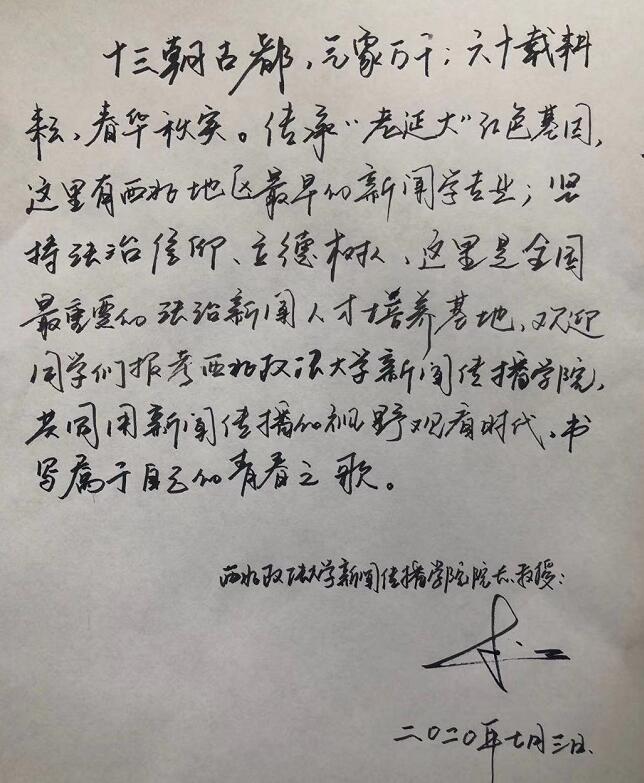 十三朝古都，气象万千；六十载耕
耘，春华秋实。传承“老延大”红色基因，
这里有西北地区最早的新闻学专业；坚
持法治信仰、立德树人，这里是全国
最重要的法治新闻人才培养基地，欢迎
同学们报考西北政法大学新闻传播学院，
共同用新闻传播的视野观看时代，书
写属于自己的青春之歌。
西北政法大学新闻传播学院院长教授：
二〇二〇年七月三日